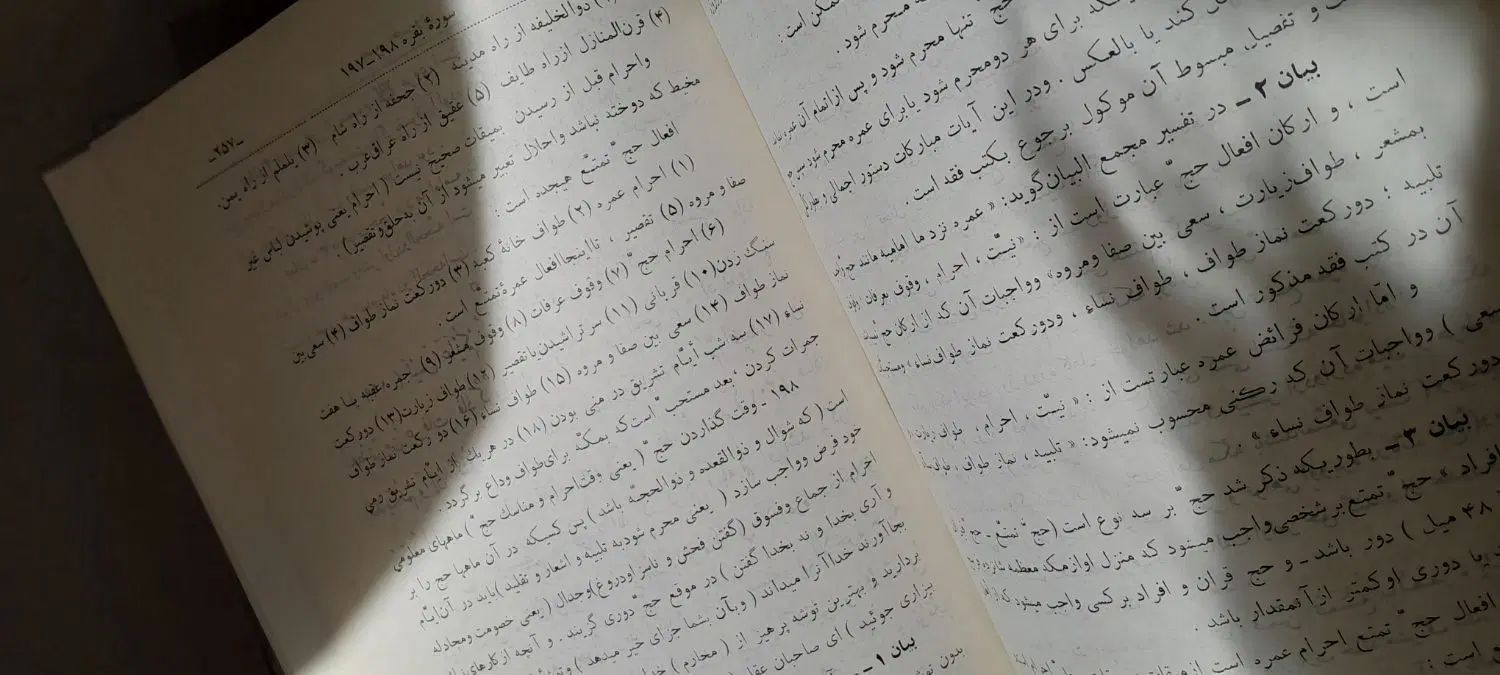 ممکن است :
حج تنها محرم شود و پس از اتمام آن
برای هر دو محرم شود یا برای عمره محرم شود
کند یا بالعکس . و در این آیات مبارکات دستور اجمالی
و تفصیل مبسوط آن موکول برجوع بکتب فقه است .
بیان ۲ ـ در تفسیر مجمع البیان گوید: « عمره نزد ما امامیه مانند حج
است ، و ارکان افعال حجّ عبارت است از : «نیّت ، احرام ، وقوف بعرفات
بمشعر ، طواف زیارت ، سعی بین صفا ومروه» وواجبات آن که از ارکان حج
تلبیه ؛ دور کعت نماز طواف ، طواف نساء ، ودور کعت نماز طواف نساء»
آن در کتب فقه مذکور است .
و امّا ارکان فرائض عمره عبارتست از : « نیّت ، احرام ، طواف
سعی ) وواجبات آن که رکنی محسوب نمیشود: « تلبیه ، نماز طواف ،
دور کعت نماز طواف نساء» .
بیان ۳ ـ بطوریکه ذکر شد حجّ بر سه نوع است (حجّ تمتّع ـ حج
افراد » حجّ تمتع بر شخصی واجب میشود که منزل او از مکه معظمه
۴۸ میل ) دور باشد ـ و حج قران و افراد بر کسی واجب میشود که
یا دوری او کمتر از آنمقدار باشد .
افعال حجّ تمتع احرام عمره است از
است :
سورهٔ بقره ۱۹۸ـ۱۹۷
ـ۲۵۷ـ
ذوالحلیفه از راه مدینه (۲) جحفه از راه شام (۳) یلملم از راه یمن.
(۴) قرن‌المنازل از راه طایف (۵) عقیق از راه عراق عرب .
واحرام قبل از رسیدن بمیقات صحیح نیست ( احرام یعنی پوشیدن لباس غیر
مخیط که دوخته نباشد واحلال تعبیر میشود از آن بحلق وتقصیر) .
افعال حجّ تمتّع هیجده است :
(۱) احرام عمره (۲) طواف خانهٔ کعبه (۳) دور کعت نماز طواف (۴) سعی بین
صفا و مروه (۵) تقصیر ، تااینجاافعال عمرهٔ تمتّع است .
(۶) احرام حجّ (۷) وقوف عرفات (۸) وقوف مشعر (۹) جمره عقبه با هفت
سنگ زدن(۱۰) قربانی (۱۱) سر تراشیدن یا تقصیر (۱۲) طواف زیارت(۱۳) دور کعت
نماز طواف (۱۴) سعی بین صفا و مروه (۱۵) طواف نساء(۱۶) دو رکعت نماز طواف
نساء (۱۷) سه شب ایّام تشریق در منی بودن (۱۸) در هریك از ایّام تشریق رمی
جمرات کردن ؛ بعد مستحب است که بمکّه برای طواف وداع برگردد .
۱۹۸ـ وقت گذاردن حجّ ( یعنی وقت احرام و مناسك حجّ ) ماههای معلومی
است ( که شوال و ذوالقعده و ذوالحجه باشد ) پس کسیکه در آن ماهها حج را بر
خود فرض وواجب سازد ( یعنی محرم شود به تلبیه و اشعار و تقلید ) باید در آن ایّام
احرام از جماع وفسوق (گفتن فحش و ناسزا ودروغ)وجدال (یعنی خصومت ومجادله
و آری بخدا و نه بخدا گفتن ) در موقع حج دوری گزیند . و آنچه از کارهای
بجا آورند خدا آنرا میداند ( وبآن بشما جزای خیر میدهد )
بردارید و بهترین توشه پرهیز از ( محارم )
بیزاری جوئید ) ای صاحبان
بیان ۱ ـ
بدون